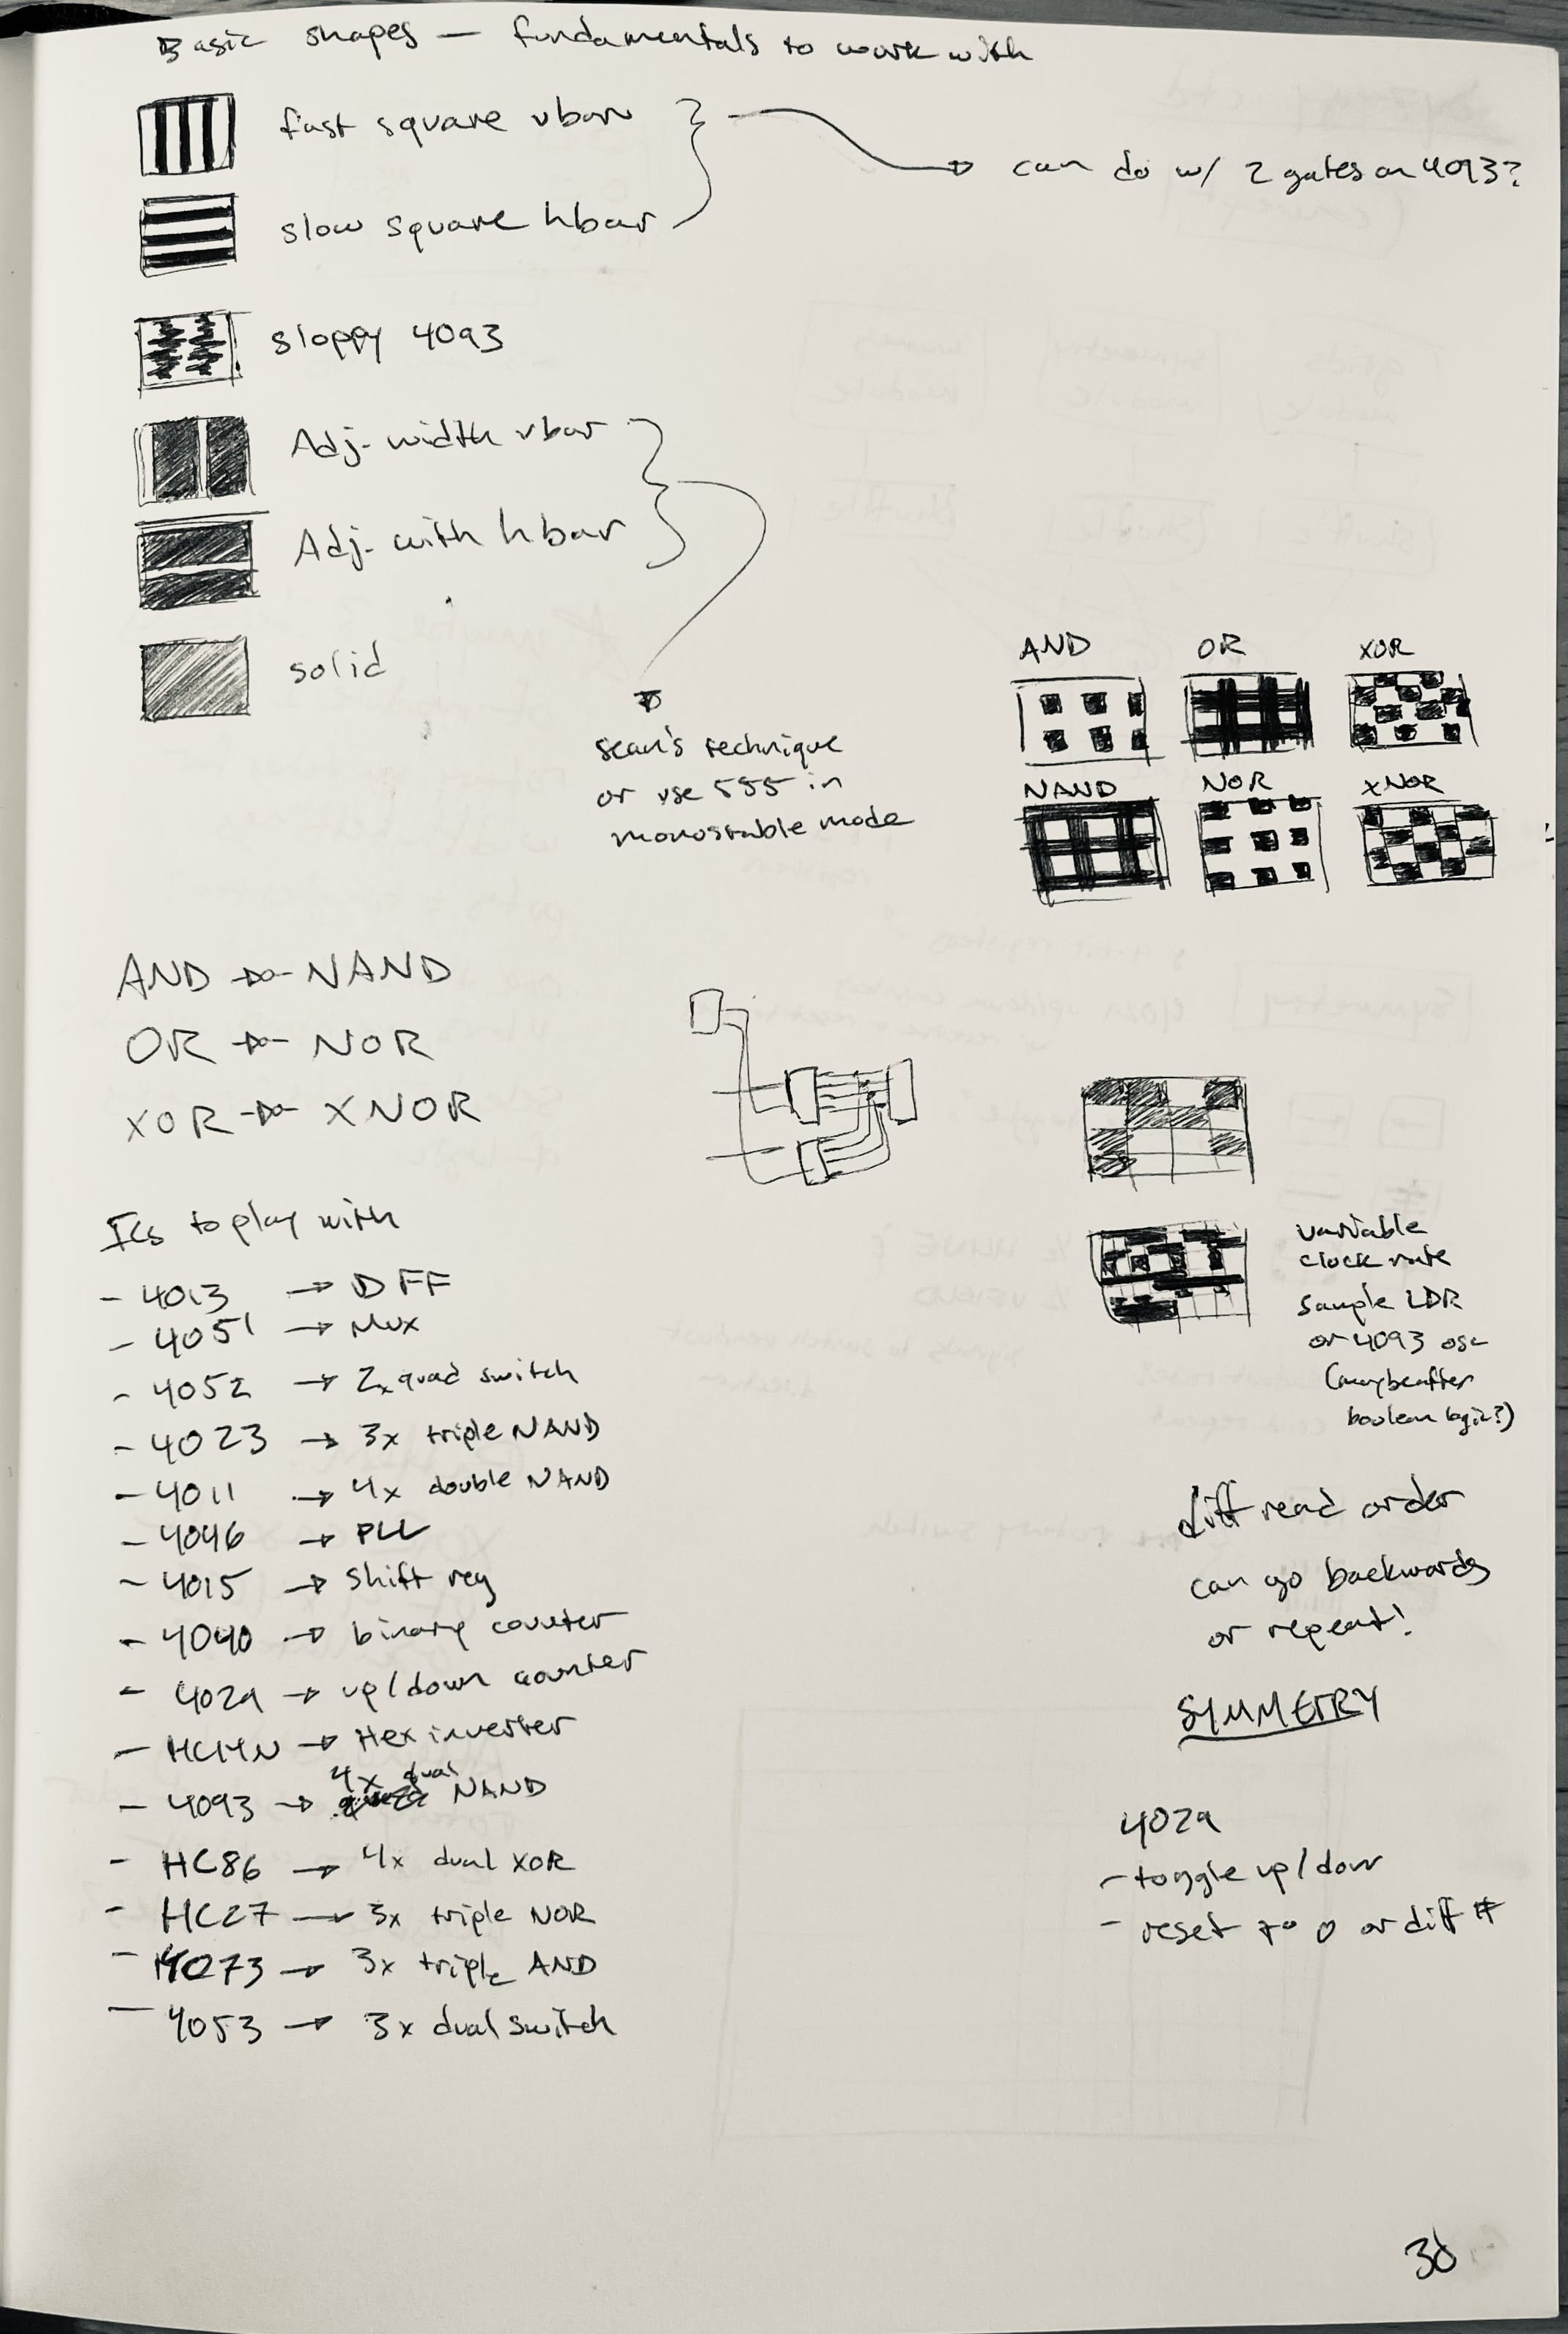 Basic shapes — fundamentals to work with
fast square vbar
can do w/ 2 gates on 4093?
slow square hbar
sloppy 4093
Adj. width vbar
Adj. with hbar
solid
sean's technique
or use 555 in
monostable mode
AND OR XOR
NAND NOR XNOR
AND NAND
OR NOR
XOR XNOR
ICs to play with
- 4013 → DFF
- 4051 → Mux
- 4052 → 2x quad switch
- 4023 → 3x triple NAND
- 4011 → 4x double NAND
- 4046 → PLL
- 4015 → shift reg
- 4040 → binary counter
- 4029 → up/down counter
- HC14N → Hex inverter
- 4093 → 4x dual NAND
- HC86 → 4x dual XOR
- HC27 → 3x triple NOR
- 4073 → 3x triple AND
- 4053 → 3x dual switch
variable
clock rate
sample LDR
or 4093 osc
(maybe after
boolean logic?)
diff read order
can go backwards
or repeat!
SYMMETRY
4029
- toggle up/down
- reset to 0 or diff #